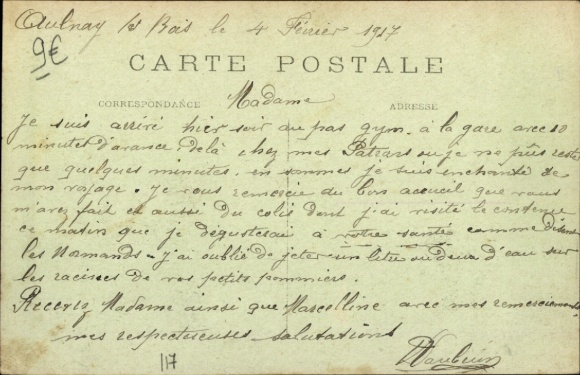 Aulnay les Bois le 4 Février 1917
9€
CARTE POSTALE
CORRESPONDANCE Madame ADRESSE
Je suis arrivé hier soir au pas gym. à la gare avec 10
minutes d'avance de là chez mes Patrons ou je ne pûs rester
que quelques minutes. en sommes je suis enchanté de
mon voyage. Je vous remercie du bon accueil que vous
m'avez fait et aussi du colis dont j'ai visité le contenu
ce matin que je dégusterai à votre santé comme disent
les Normands - j'ai oublié de jeter un litre ou deux d'eau sur
les racines de vos petits pommiers.
Recevez Madame ainsi que avec mes remerciements
mes respectueuses salutations
117